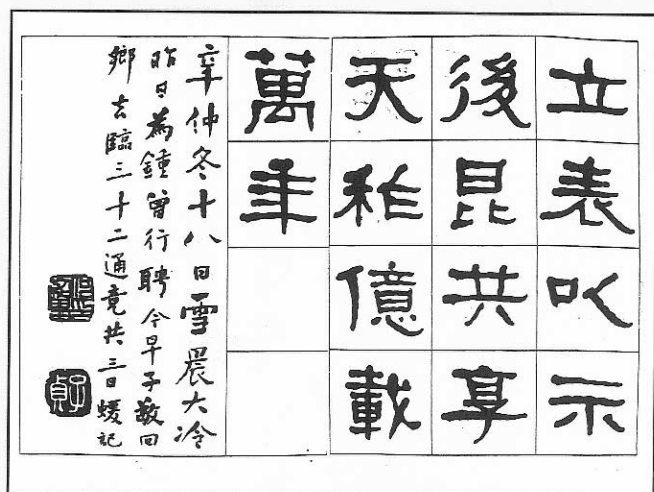 立表㕥示
後昆共享
天祚億載
萬年
辛仲冬十八日雪晨大冷
昨日為鍾曾行聘今早子敬回
鄉去臨三十二通竟共三日蝯記